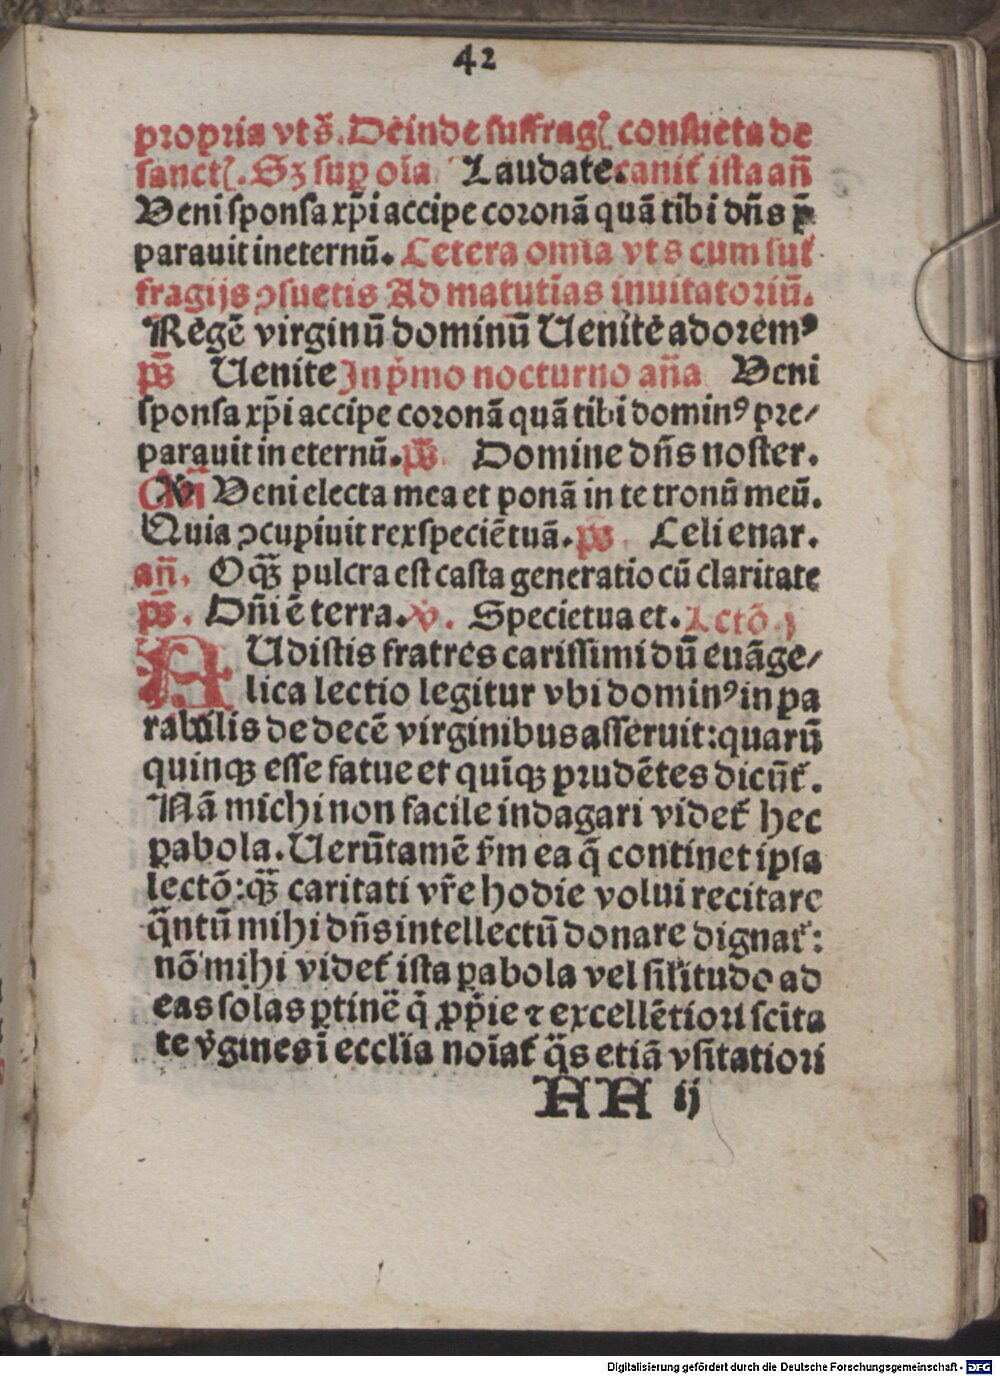 42
propria vt s̄. Deinde suffragꝭ consueta de
sanctꝭ. Sꝫ sup̄ oīa Laudate. canit᷑ ista an̄
Veni sponsa xp̄i accipe coronā quā tibi dn̄s p̄
parauit in eternū. Cetera omnia vt s cum suf
fragijs ꝯsuetis Ad matutīas inuitatoriū.
Regē virginū dominū Uenite adoremꝰ
ps̄ Uenite In p̄mo nocturno an̄a Veni
sponsa xp̄i accipe coronā quā tibi dominꝰ pre/
parauit in eternū. ps̄ Domine dn̄s noster.
An̄ Veni electa mea et ponā in te tronū meū.
Quia ꝯcupiuit rex speciē tuā. ps Celi enar.
an̄. O qͣꝫ pulcra est casta generatio cū claritate
ps̄. Dn̄i ē terra. ℣. Specie tua et. Lctō j
AUdistis fratres carissimi dū euāge/
lica lectio legitur vbi dominꝰ in pa
rabulis de decē virginibus asseruit: quarū
quinqꝫ esse fatue et quīqꝫ prudētes dicūt᷑.
Nā michi non facile indagari videt᷑ hec
ꝑabola. Uerūtamē s̄m ea q̄ continet ipsa
lectō: qͣꝫ caritati vr̄e hodie volui recitare
qͣntū mihi dn̄s intellectū donare dignat᷑:
nō mihi videt᷑ ista ꝑabola vel sil̄itudo ad
eas solas ꝑtinē q̄ ꝓp̄ie ⁊ excellētiori scīta
te v̓gines ī eccl̄ia noīat᷑ qͣs etiā vsitatiori
AA ij
Digitalisierung gefördert durch die Deutsche Forschungsgemeinschaft - DFG